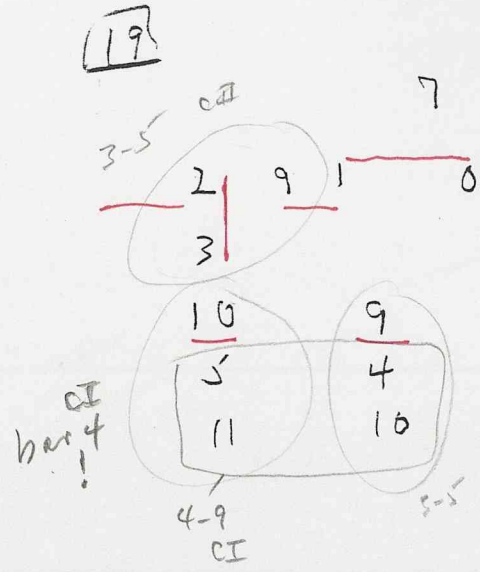 19
7
cII
3-5
2 9 1 0
3
10 9
5 4
11 10
cI
bar 4
!
3-5
4-9
CI